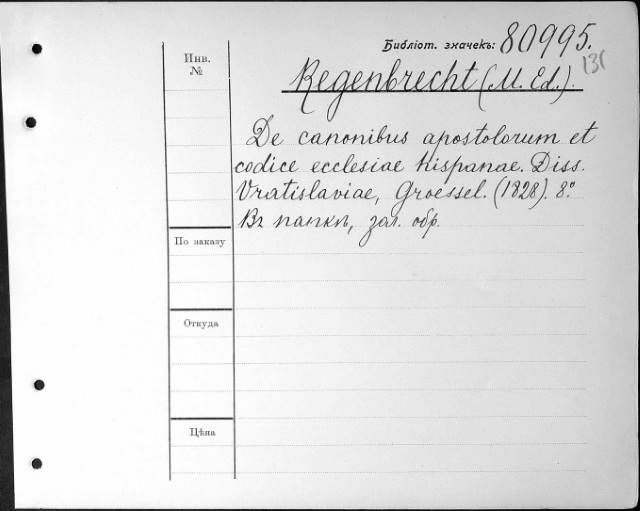 Библіот. значекъ: 80995.
131
Инв.
№
Regenbrecht (M. Ed.).
De canonibus apostolorum et
codice ecclesiae hispanae. Diss.
Vratislaviae, Groessel. (1828). 8°.
Въ папкѣ, зол. обр.
По заказу
Откуда
Цѣна